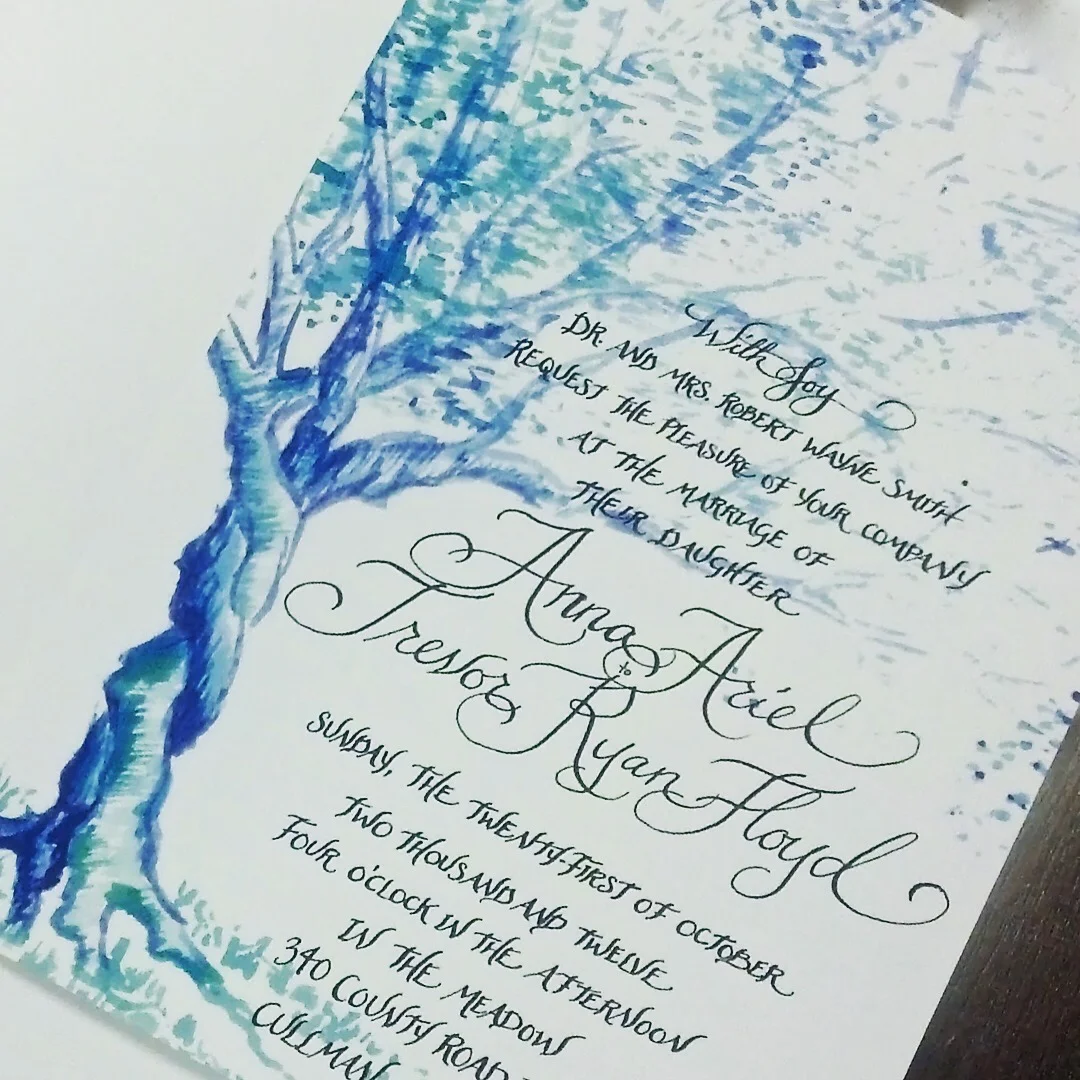 With Joy
DR. AND MRS. ROBERT WAYNE SMITH
REQUEST THE PLEASURE OF YOUR COMPANY
AT THE MARRIAGE OF
THEIR DAUGHTER
Anna Ariel
to
Trevor Ryan Floyd
SUNDAY, THE TWENTY-FIRST OF OCTOBER
TWO THOUSAND AND TWELVE
FOUR O'CLOCK IN THE AFTERNOON
IN THE MEADOW
340 COUNTY ROAD
CULLMAN